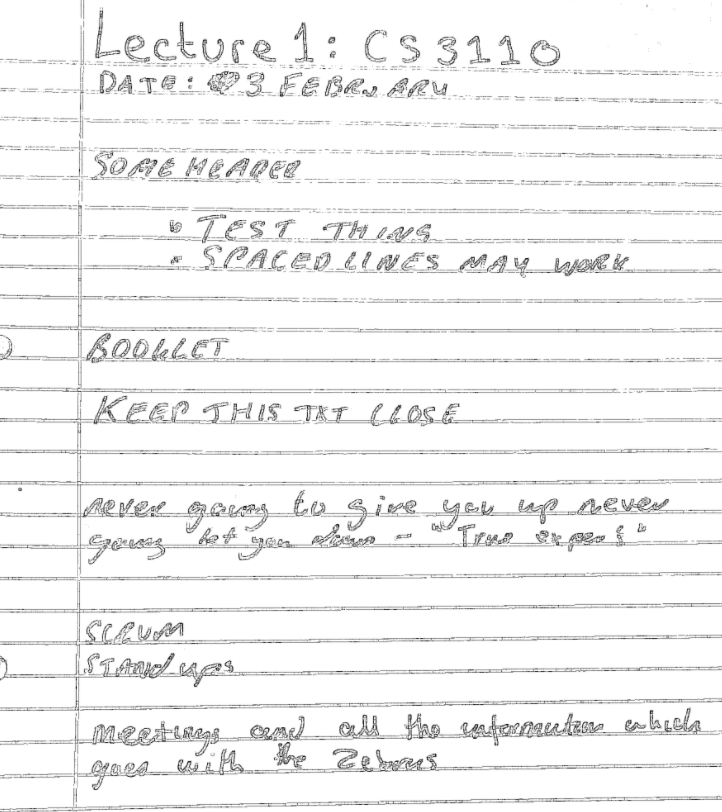 Lecture 1: CS 3110
DATE: 3 FEBRUARY
SOME HEADER
TEST THING
- SPACED LINES MAY WORK
BOOKLET
KEEP THIS TXT CLOSE
never going to give you up never
going let you down - "True expert"
SCRUM
STAND ups
Meetings and all the information which
goes with the Zebras